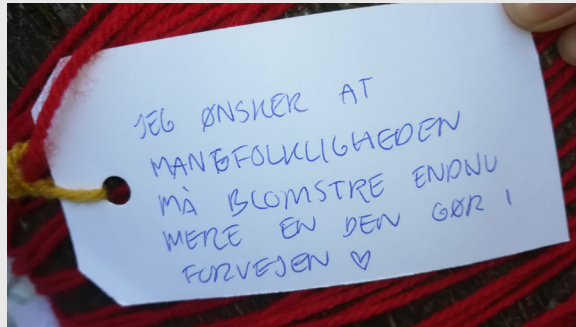 JEG ØNSKER AT
MANGFOLKLIGHEDEN
MÅ BLOMSTRE ENDNU
MERE EN DEN GØR I
FORVEJEN ♡